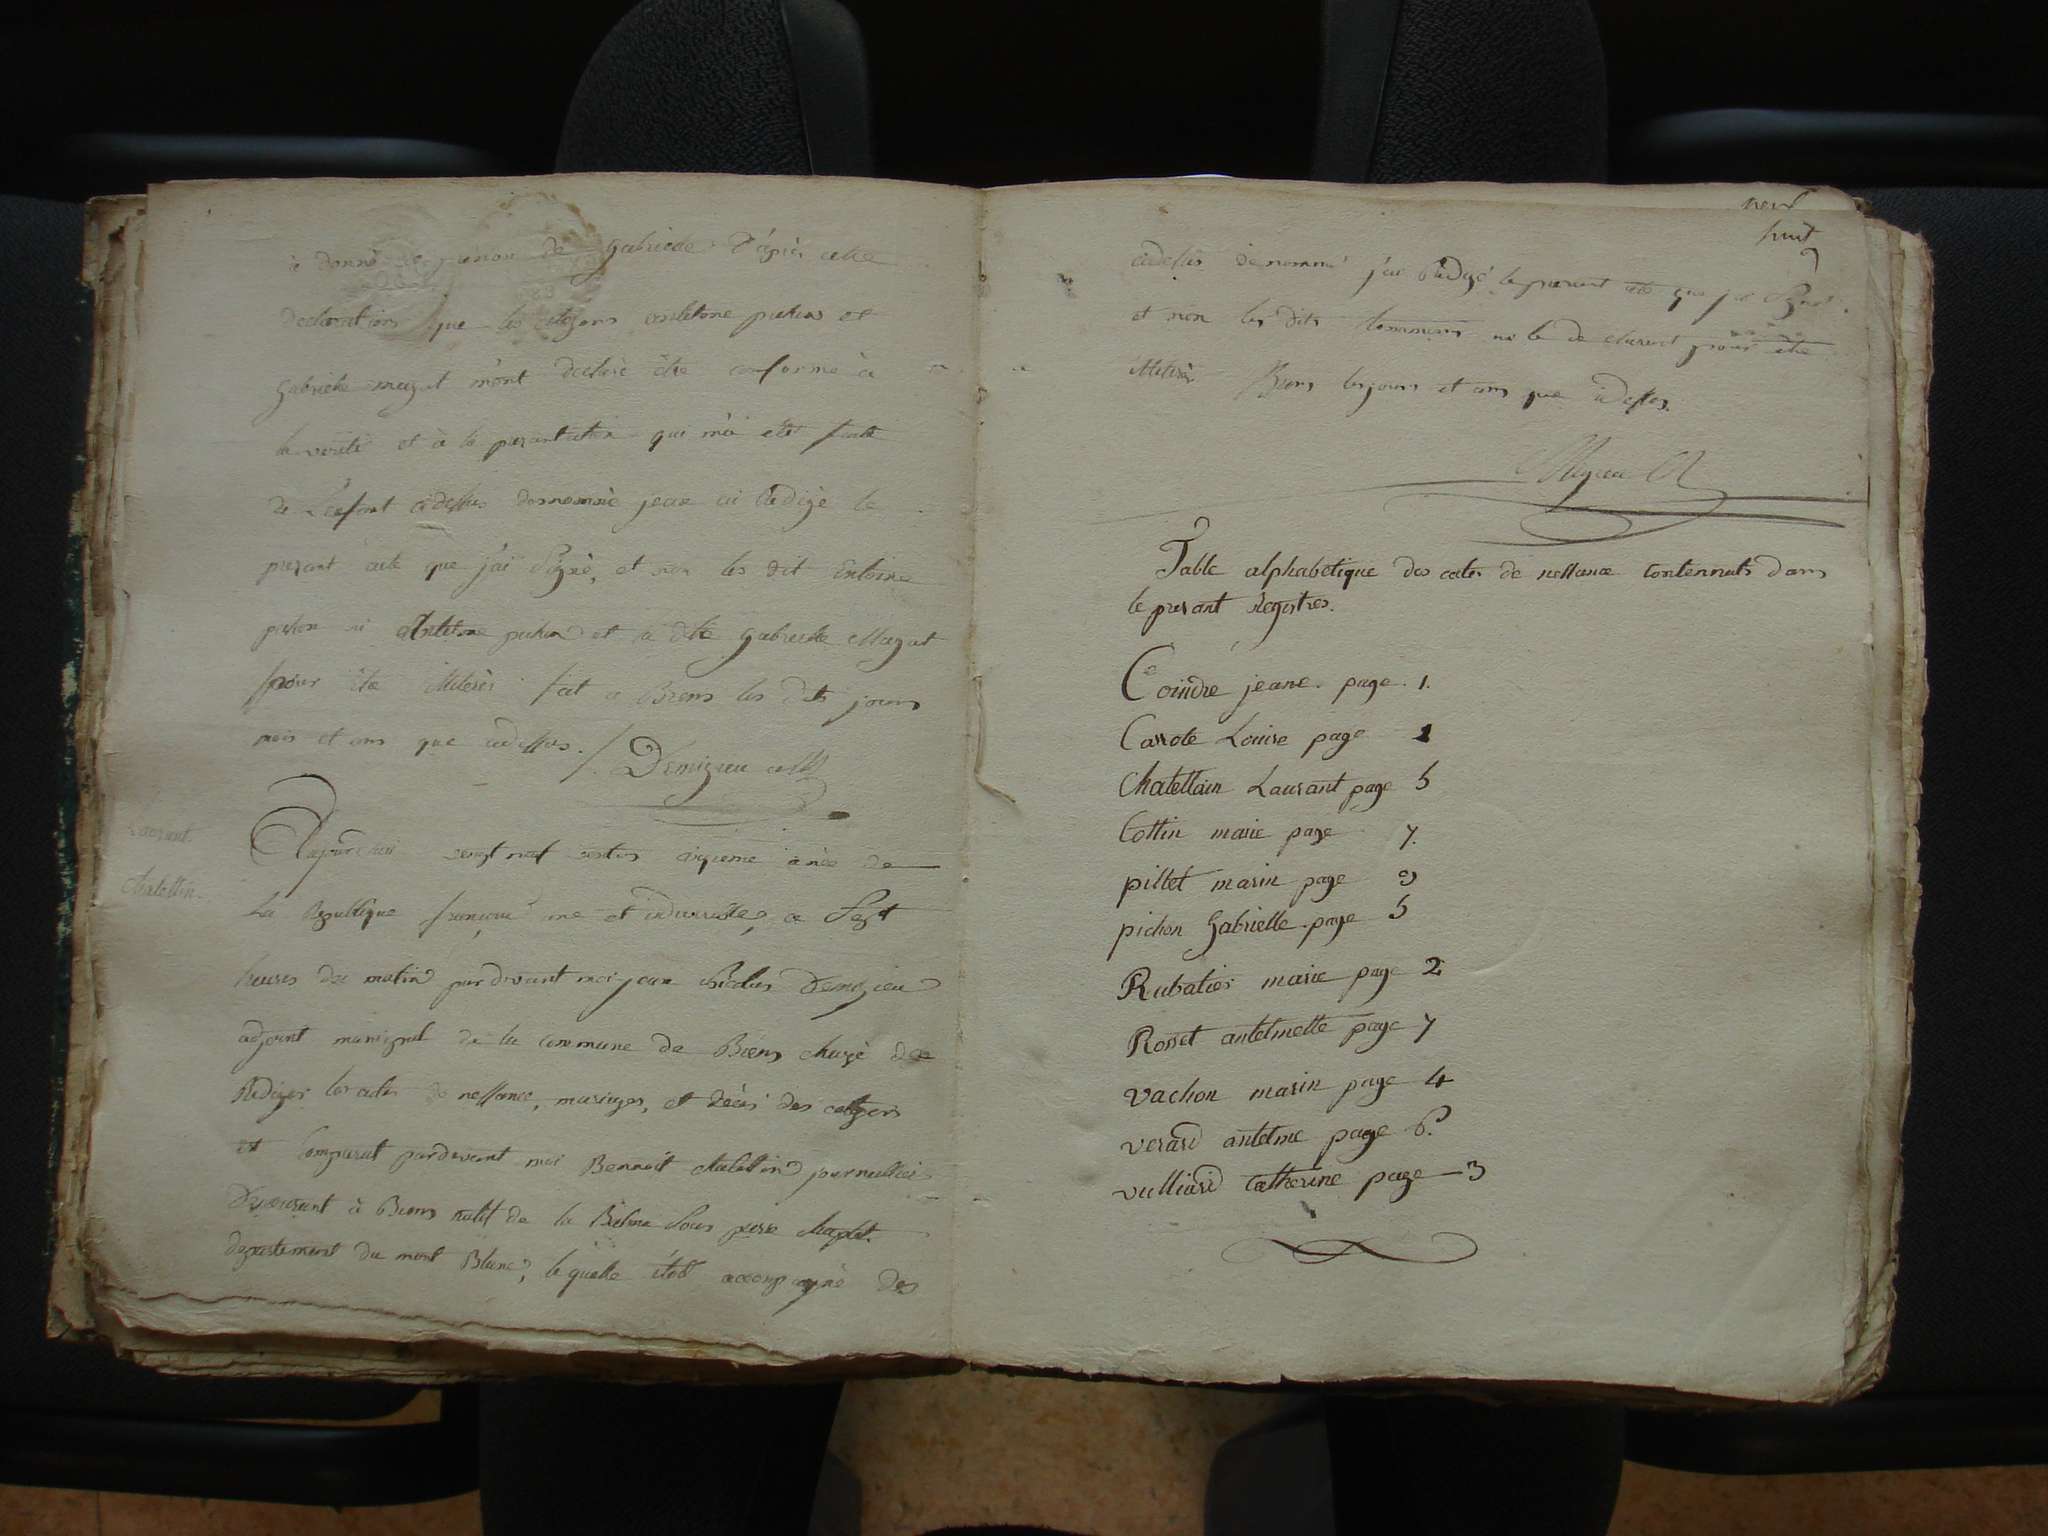 à donné le prenom de gabrielle D'après cette
declarations que les citoyens antelme pichon et
Gabrielle mazat m'ont declaré être conforme à
la verité et à la presantation qui m'a eté faitte
de L'enfant cidessus denommée jeane ai Redigé le
presant acte que j'ai Signé, et non les dit Entoine
pichon ni Antelme pichon et la dite gabrielle Mazat
pour être illiterés fait a Brens les dits jours
mois et ans que cidessus. Demigieu
Laurant
chatellin
Aujourd'hui vengt neuf cinquieme anée de
La Republique française une et indivisible, a Sept
heures du matin pardevant moi jean Nicolas Demigieu
adjoint municipal de la commune de Brens chargé de
Rediger les actes de nessance, mariages, et décès des citoyens
et Comparut pardevant moi Bennoit chatellin journallier
Demeurant à Brens natif de la Balme Sous pierre chapt.
departement du mont Blanc, le quelle etoit accompagné des
neuf
huit
9
cidessus denommé j'ai Redigé le presant acte que j'ai Signé
et non les dits temmoins ne le declarent pour être
illiterés Brens les jours et ans que cidesses.
Table alphabetique des actes de nessance Contennuts dans
le presant Registres.
Coindre jeane. page. 1.
Carrote Louise page 1
Chatellain Laurant page 5
Cottin marie page 7.
pillet marin page 9
pichon Gabrielle page 5
Rubatier marie page 2
Rosset antelmette page 7
vachon marin page 4
verard antelme page 6.
vulliard Catherine page 3